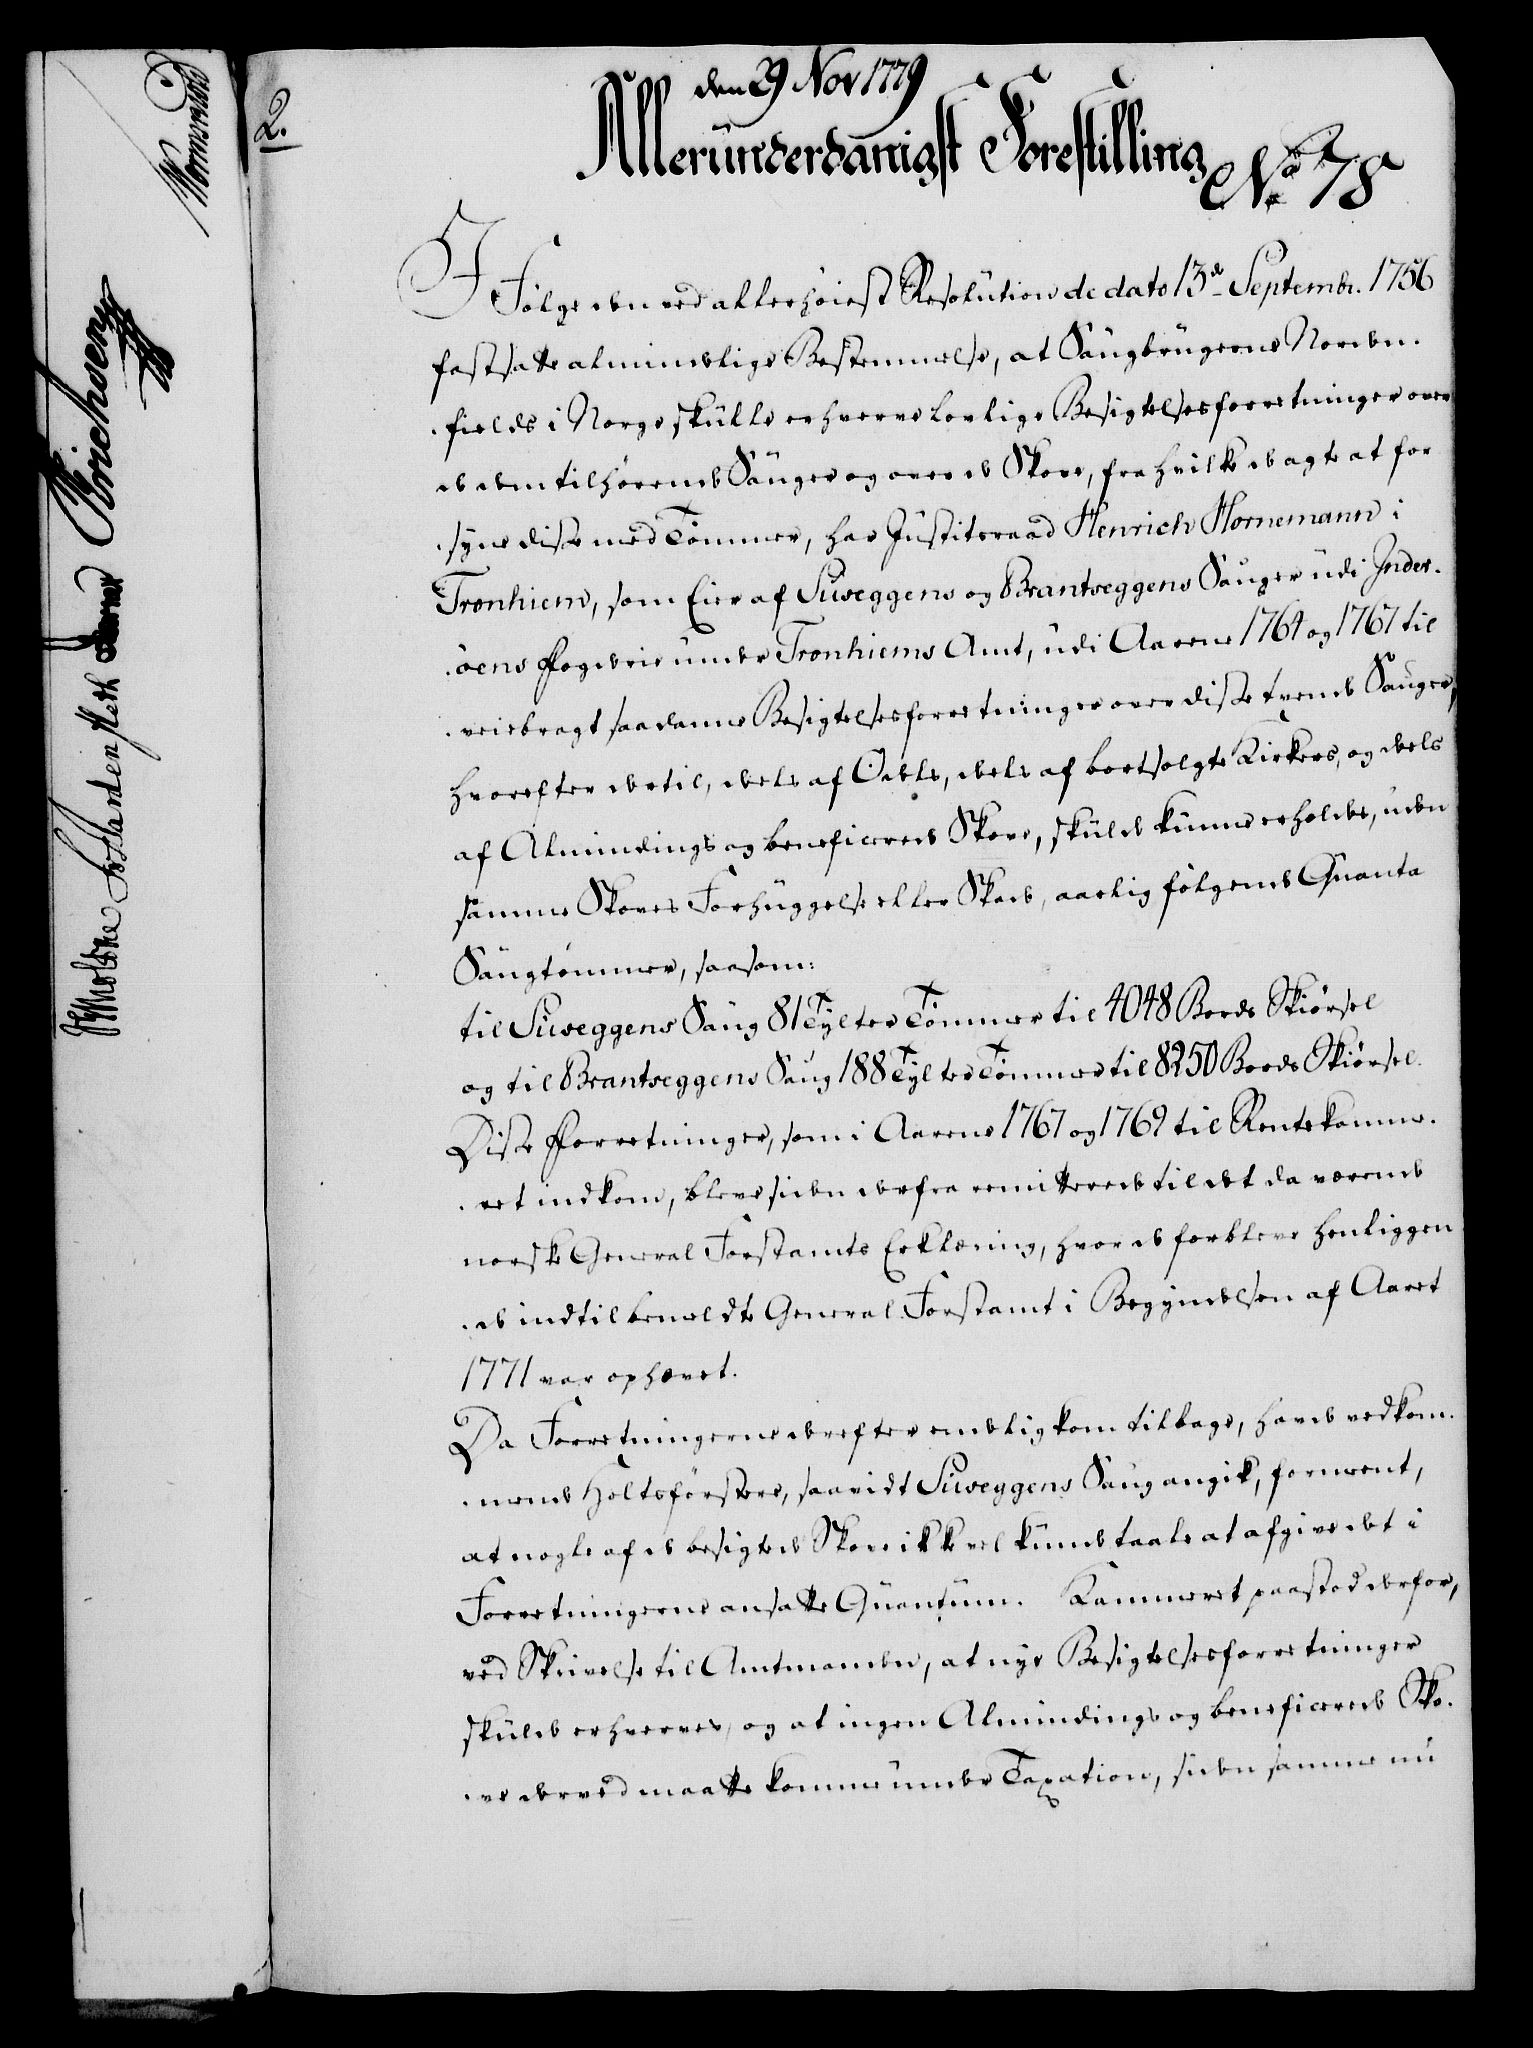 2.
den 29 Nov 1779
Allerunderdanigst Forestilling
No 78
I Følge den ved allerhøiest Resolution de dato 13de Septembr. 1756
fastsatte almindelige Bestemmelse, at Saugbrugerne Norden-
-fields i Norge skulle erhverve lovlige Besigtelsesforretninger over
de dem tilhørende Sauger og over de Skove, fra hvilke de agte at for
-syne disse med Tømmer, har Justitsraad Henrich Hornemann i
Tronhiem, som Eier af Suseggens og Brantseggens Sauger udi Inder-
-øens Fogderie under Tronhiems Amt, udi Aarene 1764 og 1767 til
-veiebragt saadanne Besigtelsesforretninger over disse tvende Sauger,
hvorefter dertil, deels af Odels, deels af bortsolgte Kirkers, og deels
af Almindings og beneficerede Skove, skulde kunne erholdes, uden
samme Skoves Forhuggelse eller Skade, aarlig følgende Quanta
Saugtømmer, saasom:
til Suseggens Saug 81 Tylter Tømmer til 4048 Bords Skiørsel
og til Brantseggens Saug 188 Tylter Tømmer til 8250 Bords Skiørsel.
Disse Forretninger, som i Aarene 1767 og 1769 til Rentekamme-
-ret indkom, bleve siden derfra remitterede til det da værende
norske General Forstamts Erklæring, hvor de forbleve henliggen
-de indtil bemeldte General Forstamt i Begyndelsen af Aaret
1771 var ophævet.
Da Forretningerne derefter endelig kom tilbage, havde vedkom-
-mende Holtsførstere, saavidt Suseggens Saug angik, formeent,
at nogle af de besigtede Skove ikke vel kunde taale at afgive det i
Forretningerne ansatte Quantum. Kammeret paastod derfor,
ved Skrivelse til Amtmanden, at nye Besigtelsesforretninger
skulde erhverves, og at ingen Almindings og beneficerede Sko-
-ve derved maatte komme under Taxation, siden samme nu